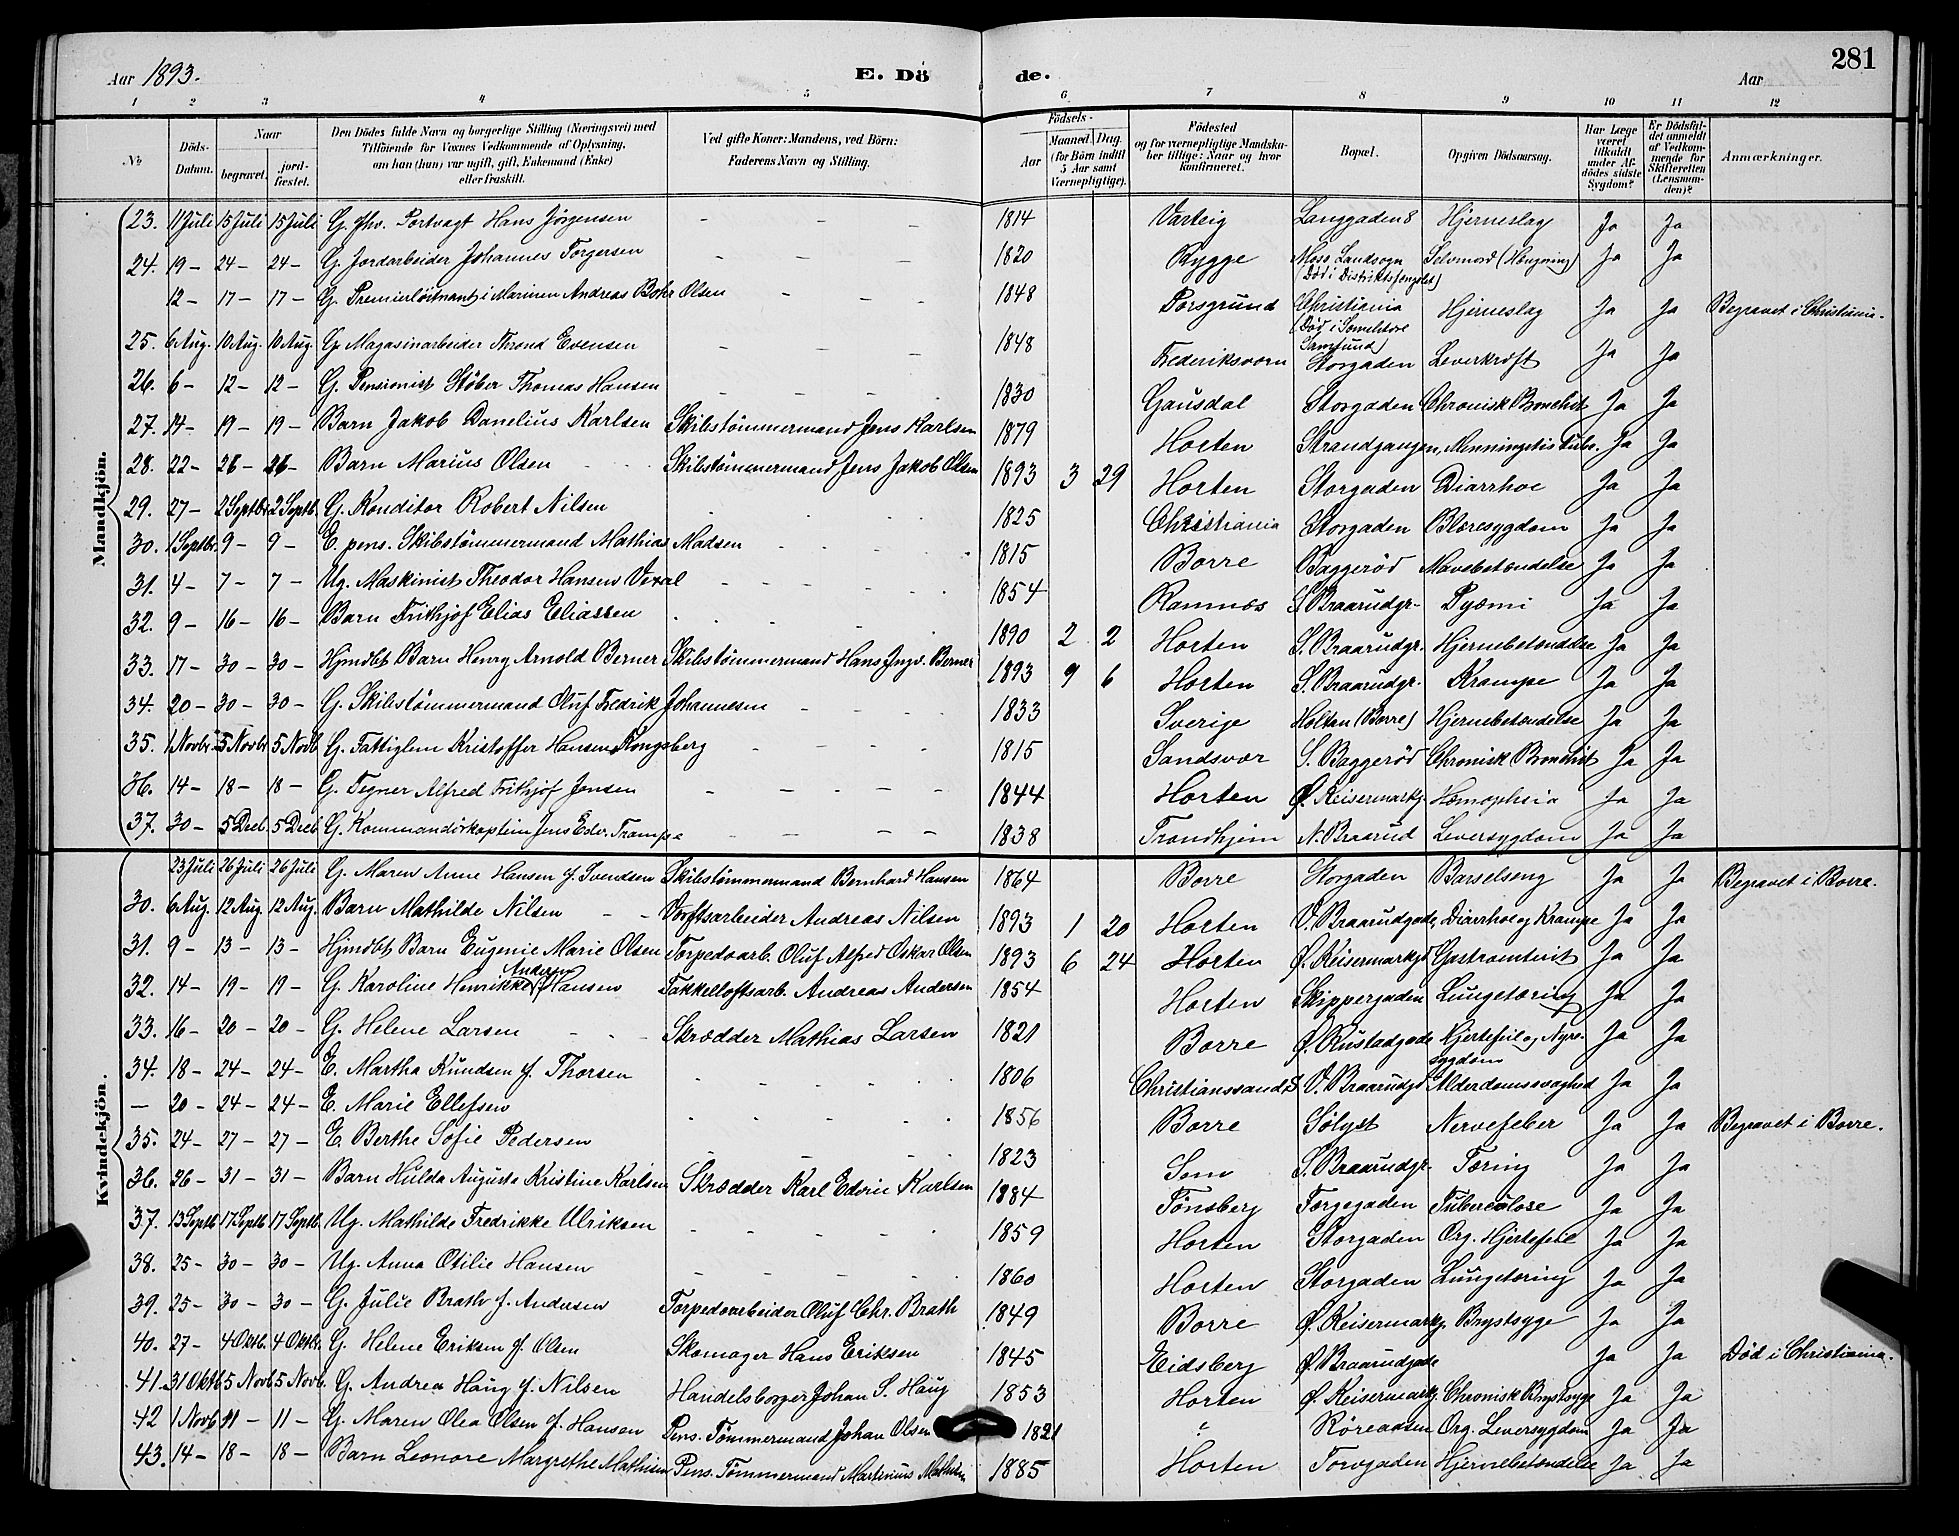 Aar 1893. E. Dö de. Aar 281
1 2 3 4 5 6 7 8 9 10 11 12
No Döds-Datum. Naar begravet. jord-fæstet. Den Dödes fulde Navn og borgerlige Stilling (Næringsvei) med Tilföiende for Voxnes Vedkommende af Oplysning, om han (hun) var ugift, gift, Enkemand (Enke) eller fraskilt. Ved gifte Koner: Mandens, ved Börn: Faderens Navn og Stilling. Födsels- Aar Maaned. Dag. (for Börn indtil 5 Aar samt Værnepligtige). Födested og for værnepligtige Mandskaber tillige: Naar og hvor konfirmeret. Bopæl. Opgiven Dödsaarsag. Har Læge været tilkaldt under Afdödes sidste Sygdom? Er Dödsfaldet anmeldt af Vedkommende for Skifteretten (Lensmanden)? Anmærkninger.
Mandkjön.
23. 11 Juli 15 Juli 15 Juli G. fhv. Portvagt Hans Jørgensen - - - 1814 Varteig Langgaden 8 Hjerneslag Ja Ja
24. 19 - 24 - 24 - G. Jordarbeider Johannes Torgersen - - - 1820 Rygge Moss Landsogn (Død i Distriktsfængslet) Selvmord (Hængning) Ja Ja
12 - 17 - 17 - G. Premierløitnant i Marinen Andreas Bohr Olsen - - - 1848 Porsgrund Christiania (Død i Samfund) Hjerneslag Ja Ja Begravet i Christiania.
25. 6 Aug. 10 Aug. 10 Aug. G. Magasinarbeider Thrond Evensen - - - 1848 Frederiksværn Storgaden Leverkræft Ja Ja
26. 6 - 12 - 12 - G. Pensionist Støber Thomas Hansen - - - 1830 Gausdal Storgaden Chronisk Bronchit Ja Ja
27. 14 - 19 - 19 - Barn Jakob Danelius Karlsen Skibstømmermand Jens Karlsen 1879 Horten Strandgangen, Menningetis Tub. Ja Ja
28. 22 - 26 - 26 - Barn Marius Olsen Skibstømmermand Jens Jakob Olsen 1893 3 29 Horten Storgaden Diarrhoe Ja Ja
29. 27 - 2 Septbr. 2 Septb. G. Konditor Robert Nilsen 1825 Christiania Storgaden Blæresygdom Ja Ja
30. 1 Septbr. 9 - 9 - E. pens. Skibstømmermand Mathias Madsen 1815 Borre Baggerød Mavebetændelse Ja Ja
31. 4 - 7 - 7 - Ug. Maskinist Theodor Hansen Vexal 1854 Ramnes S. Braarudgr. Pyæmi Ja Ja
32. 9 - 16 - 16 - Barn Frithjof Elias Eliassen 1890 2 2 Horten S. Braarudgr. Hjernebetændelse Ja Ja
33. 17 - 30 - 30 - Hjmdbt Barn Henry Arnold Berner Skibstømmermand Hans Ingv. Berner 1893 9 6 Horten S. Braarudgr. Krampe Ja Ja
34. 20 - 30 - 30 - G. Skibstømmermand Oluf Fredrik Johannesen - - - 1833 Sverige Holtan (Borre) Hjernebetændelse Ja Ja
35. 1 Novbr. 5 Novbr 5 Novb. G. Fattiglem Kristoffer Hansen Kongsberg - - - 1815 Sandsvær S. Baggerød Chronisk Bronchit Ja Ja
36. 14 - 18 - 18 - G. Tegner Alfred Frithjof Jensen - - - 1844 Horten Ø. Keisermarkg. Hæmopthsia Ja Ja
37. 30 - 5 Decb. 5 Decb G. Kommandørkaptein Jens Edv. Trampe - - - 1838 Trondhjem N. Braarud Leversygdom Ja Ja
Kvindekjön.
23 Juli 26 Juli 26 Juli G. Maren Anne Hansen f. Svendsen Skibstømmermand Bernhard Hansen 1864 Borre Storgaden Barselseng Ja Ja Begravet i Borre.
30. 6 Aug. 12 Aug. 12 Aug. Barn Mathilde Nilsen Værftsarbeider Andreas Nilsen 1893 1 20 Horten V. Braarudgade, Diarrhoe og Krampe Ja Ja
31. 9 - 13 - 13 - Hjmdbt Barn Eugenie Marie Olsen Torpedoarb. Oluf Alfred Oskar Olsen 1893 6 24 Horten Ø. Keisermarkgd Gastroenterit Ja Ja
32. 14 - 19 - 19 - G. Karoline Henrikke Andersen f. Hansen Takkelloftsarb. Andreas Andersen 1854 Horten Skippergaden Lungetæring Ja Ja
33. 16 - 20 - 20 - G. Helene Larsen Skrædder Mathias Larsen 1821 Borre Ø. Rustadgade Hjertefeil og Nyresygdom Ja Ja
34. 18 - 24 - 24 - E. Martha Knudsen f. Thorsen 1806 Christianssands S V. Braarudgd Alderdomssvaghed Ja Ja
— 20 - 24 - 24 - E. Marie Ellefsen 1856 Borre Sølyst Nervefeber Ja Ja Begravet i Borre.
35. 24 - 27 - 27 - E. Berthe Sofie Pedersen 1823 Sem S. Braarudgr. Tæring Ja Ja
36. 26 - 31 - 31 - Barn Hulda Augusta Kristine Karlsen Skrædder Karl Edvin Karlsen 1884 Tønsberg Torgegaden Tuberculose Ja Ja
37. 13 Septb. 17 Septb. 17 Septb. Ug. Mathilde Fredrikke Ulriksen 1859 Horten Storgaden Org. Hjertefeil Ja Ja
38. 25 - 30 - 30 - Ug. Anna Otilie Hansen 1860 Horten Storgaden Lungetæring Ja Ja
39. 25 - 30 - 30 - G. Julie Brath f. Andersen Torpedoarbeider Oluf Chr. Brath 1849 Borre Ø. Keisermarkg. Brystsyge Ja Ja
40. 27 - 4 Oktb. 4 Oktbr. G. Helene Eriksen f. Olsen Skomager Hans Eriksen 1845 Eidsberg Ø. Braarudgade Ja Ja Død i Christiania.
41. 31 Oktb 5 Novb. 5 Novb. G. Andrea Haug f. Nilsen Handelsborger Johan S. Haug 1853 Horten Ø. Keisermarkg. Chronisk Brystsyge Ja Ja
42 1 Novb 11 - 11 - G. Maren Olea Olsen f. Hansen Pens. Tømmermand Johan Olsen 1821 " Røreaasen Org. Leversygdom Ja Ja
43. 14 - 18 - 18 - Barn Leonore Margrethe Mathisen Pens. Tømmermand Martinius Mathisen 1885 Horten Torvgaden Hjernebetændelse Ja Ja